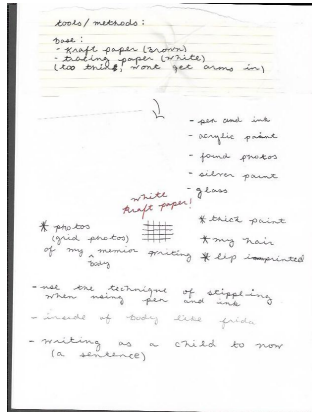 tools/methods:
base:
- Kraft paper (brown)
- tracing paper (white)
(too thin, wont get arms in)
- pen and ink
- acrylic paint
- found photos
- silver paint
- glass
white
kraft paper!
* photos
(grid photos)
of my memior writing
^ body
* thick paint
* my hair
* lip imprinted
- use the technique of stippling
when using pen and ink
- inside of body like frida
- writing as a child to now
(a sentence)